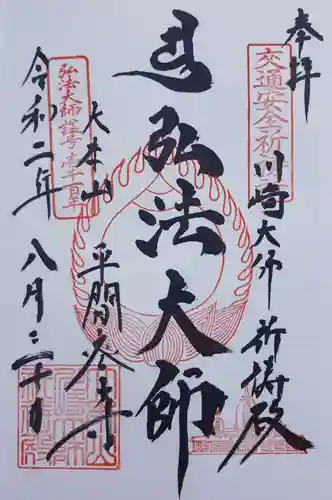 奉拝
交通安全祈
川崎大師 祈祷殿
弘法大師
大本山
平間𠫵寺
弘法大師
令和二年
八月三十日